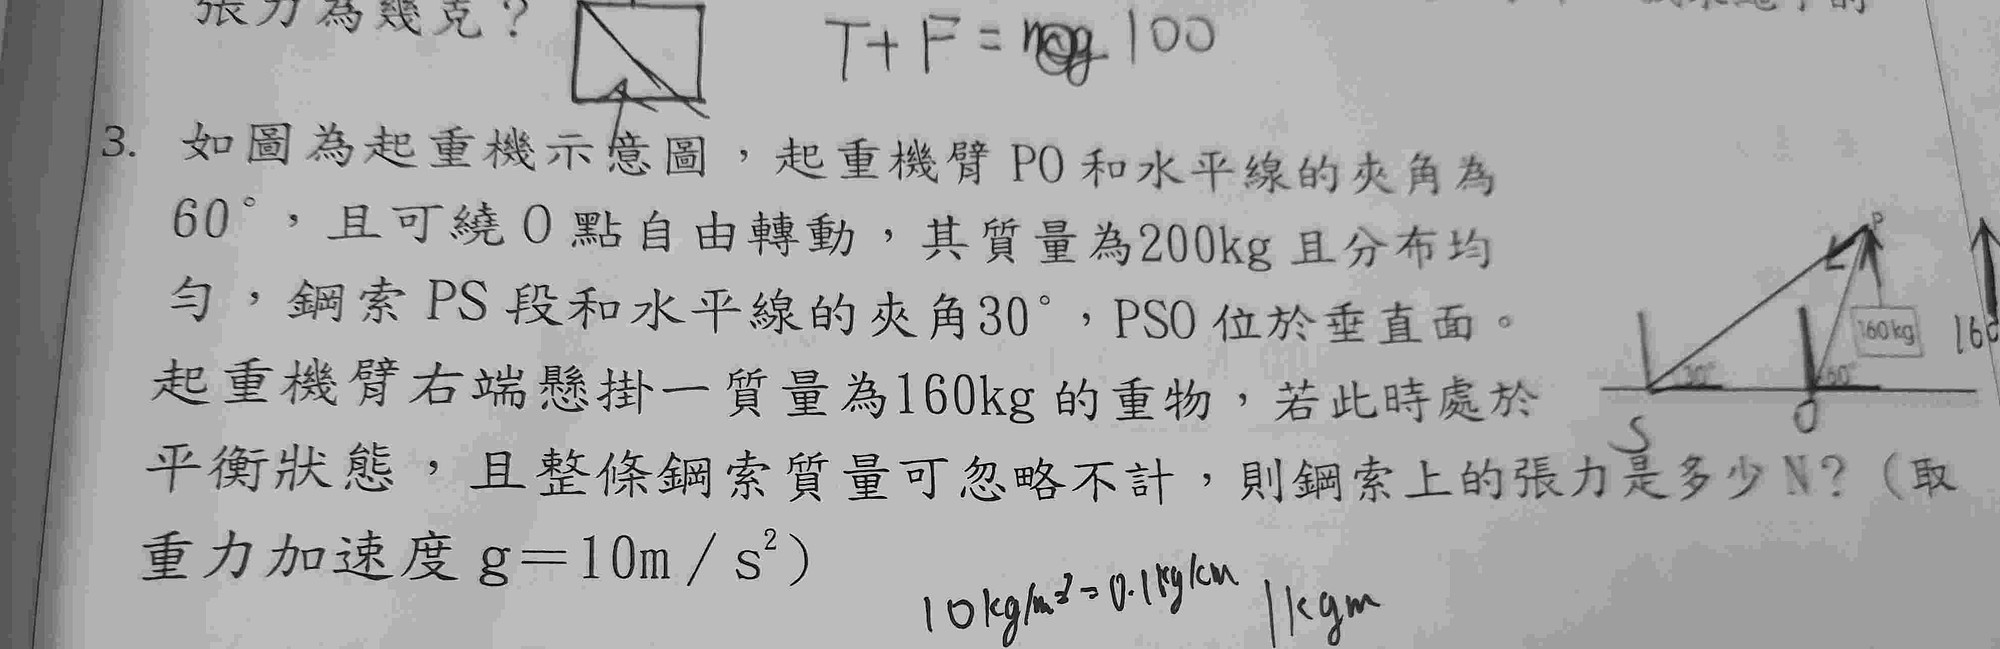 張力為幾克？
T+F= 100
3. 如圖為起重機示意圖，起重機臂 PO 和水平線的夾角為
60°，且可繞 O 點自由轉動，其質量為200kg 且分布均
勻，鋼索 PS 段和水平線的夾角30°，PSO 位於垂直面。
起重機臂右端懸掛一質量為160kg 的重物，若此時處於
平衡狀態，且整條鋼索質量可忽略不計，則鋼索上的張力是多少 N？（取
重力加速度 g＝10m／s²）
P
160kg
30°
60°
S
O
10kg/m²=0.1kg/cm
1kgm